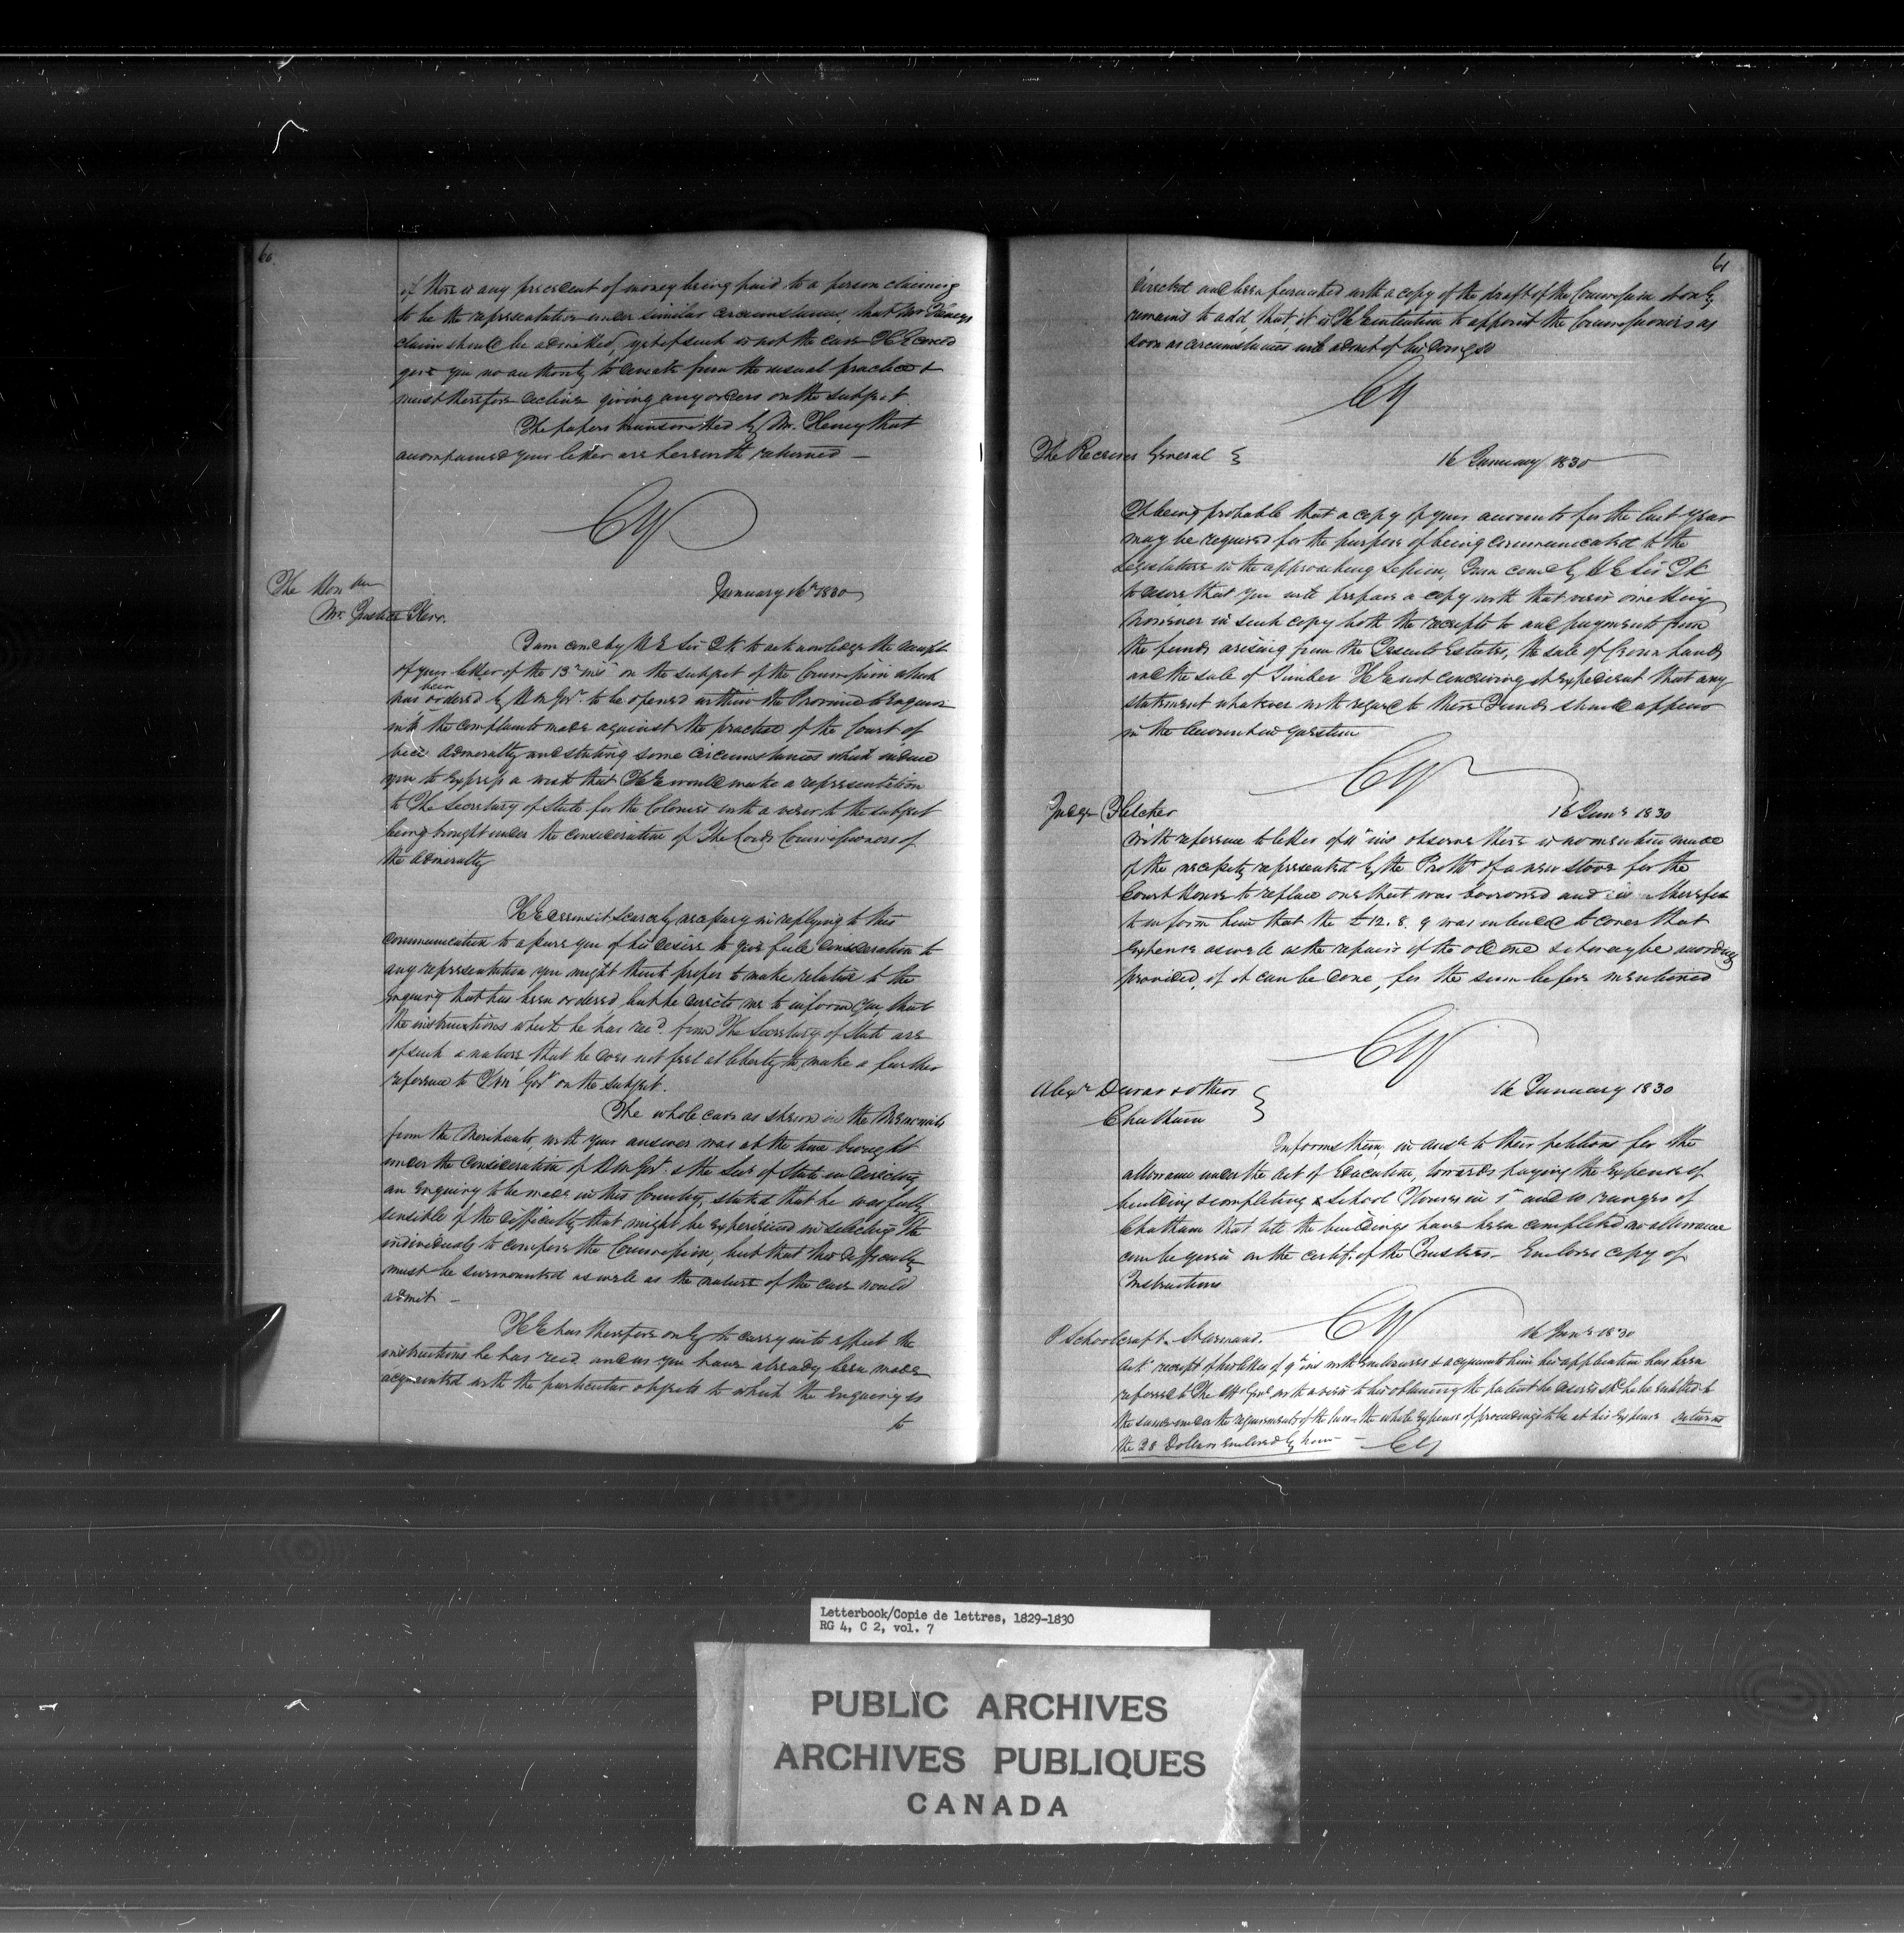 60.
if there is any precedent of money being paid to a person claiming
to be the representative under similar circumstances, that Mr Heneys
claim should be admitted, yet if such is not the case H E could
give you no authority to deviate from the usual practice &
must therefore decline giving any orders on the subject.
The papers transmitted by Mr. Heney that
accompanied your letter are herewith returned —
CY
The Honble
Mr. Justice Kerr.
January 16th 1830
I am comd by H E Sir J K to acknowledge the receipt
of your letter of the 13th inst on the subject of the Commission which
has been ordered by H M Govt. to be opened within the Province to enquire
into the complaints made against the practice of the Court of
Vice Admiralty and stating some circumstances which induce
you to express a wish that H E would make a representation
to The Secretary of State for the Colonies with a view to the subject
being brought under the consideration of The Lords Commissioners of
the Admiralty
H E deems it scarcely necessary in replying to this
communication to assure you of his desire to give full consideration to
any representation you might think proper to make relative to the
enquiry that has been ordered, but he directs me to inform you, that
the instructions which he has recd. from The Secretary of State are
of such a nature that he does not feel at liberty to make a further
reference to H M Govt on the subject.
The whole case as shewn in the Memorials
from the Merchants, with your answer was at the time brought
under the consideration of H M Govt. & the Secy of State in directing
an enquiry to be made in this Country, stated that he was fully
sensible of the difficulty that might be experienced in selecting The
individuals to compose the Commission, but that this difficulty
must be surmounted as well as the nature of the case would
admit —
H E has therefore only to carry into effect the
instructions he has recd. and as you have already been made
acquainted with the particular objects to which the enquiry is
to
61
directed and been furnished with a copy of the draft of the Commission it only
remains to add that it is H E intention to appoint the Commissioners as
soon as circumstances will admit of his doing so
CY
The Receiver General
16 January 1830
It being probable that a copy of your accounts for the last year
may be required for the purpose of being communicated to the
Legislature in the approaching Session, I am comd by H E Sir J K
to desire that you will prepare a copy with that view omitting
however in such copy both the receipts to and payments from
the funds arising from the Jesuits Estates, the sale of Crown Lands
and the sale of Timber H E not conceiving it expedient that any
statement whatever with regard to these Funds should appear
in the Account in question
CY
Judge Fletcher
16 Jany 1830
With reference to letter of 11th inst observes there is no mention made
of the necessity represented by the Proth of a new stove for the
Court House to replace one that was borrowed and is therefore
to inform him that the £12. 8. 9 was intended to cover that
expence as well as the repairs of the old one & it may be accordingly
provided, if it can be done, for the sum before mentioned
CY
Alexr & others
Chatham
16 January 1830
Informs them, in answr to their petitions for the
allowance under the Act of Education, towards paying the expence of
building & completing School Houses in and 10 ranges of
Chatham that till the buildings have been completed no allowance
can be given on the certif. of the Trustees — Encloses copy of
Instructions
CY
P Schoolcraft. St Armand.
16 Jany 1830
Ack receipt of his letter of 9th inst with enclosures & acquaint him his application has been
referred to The Atty Genl with a view to his obtaining the patent he desires shd he be entitled to
the same under the requirements of the law — the whole expense of proceedings to be at his expense returns
the 28 Dollars enclosed by him — CY
Letterbook/Copie de lettres, 1829-1830
RG 4, C 2, vol. 7
PUBLIC ARCHIVES
ARCHIVES PUBLIQUES
CANADA